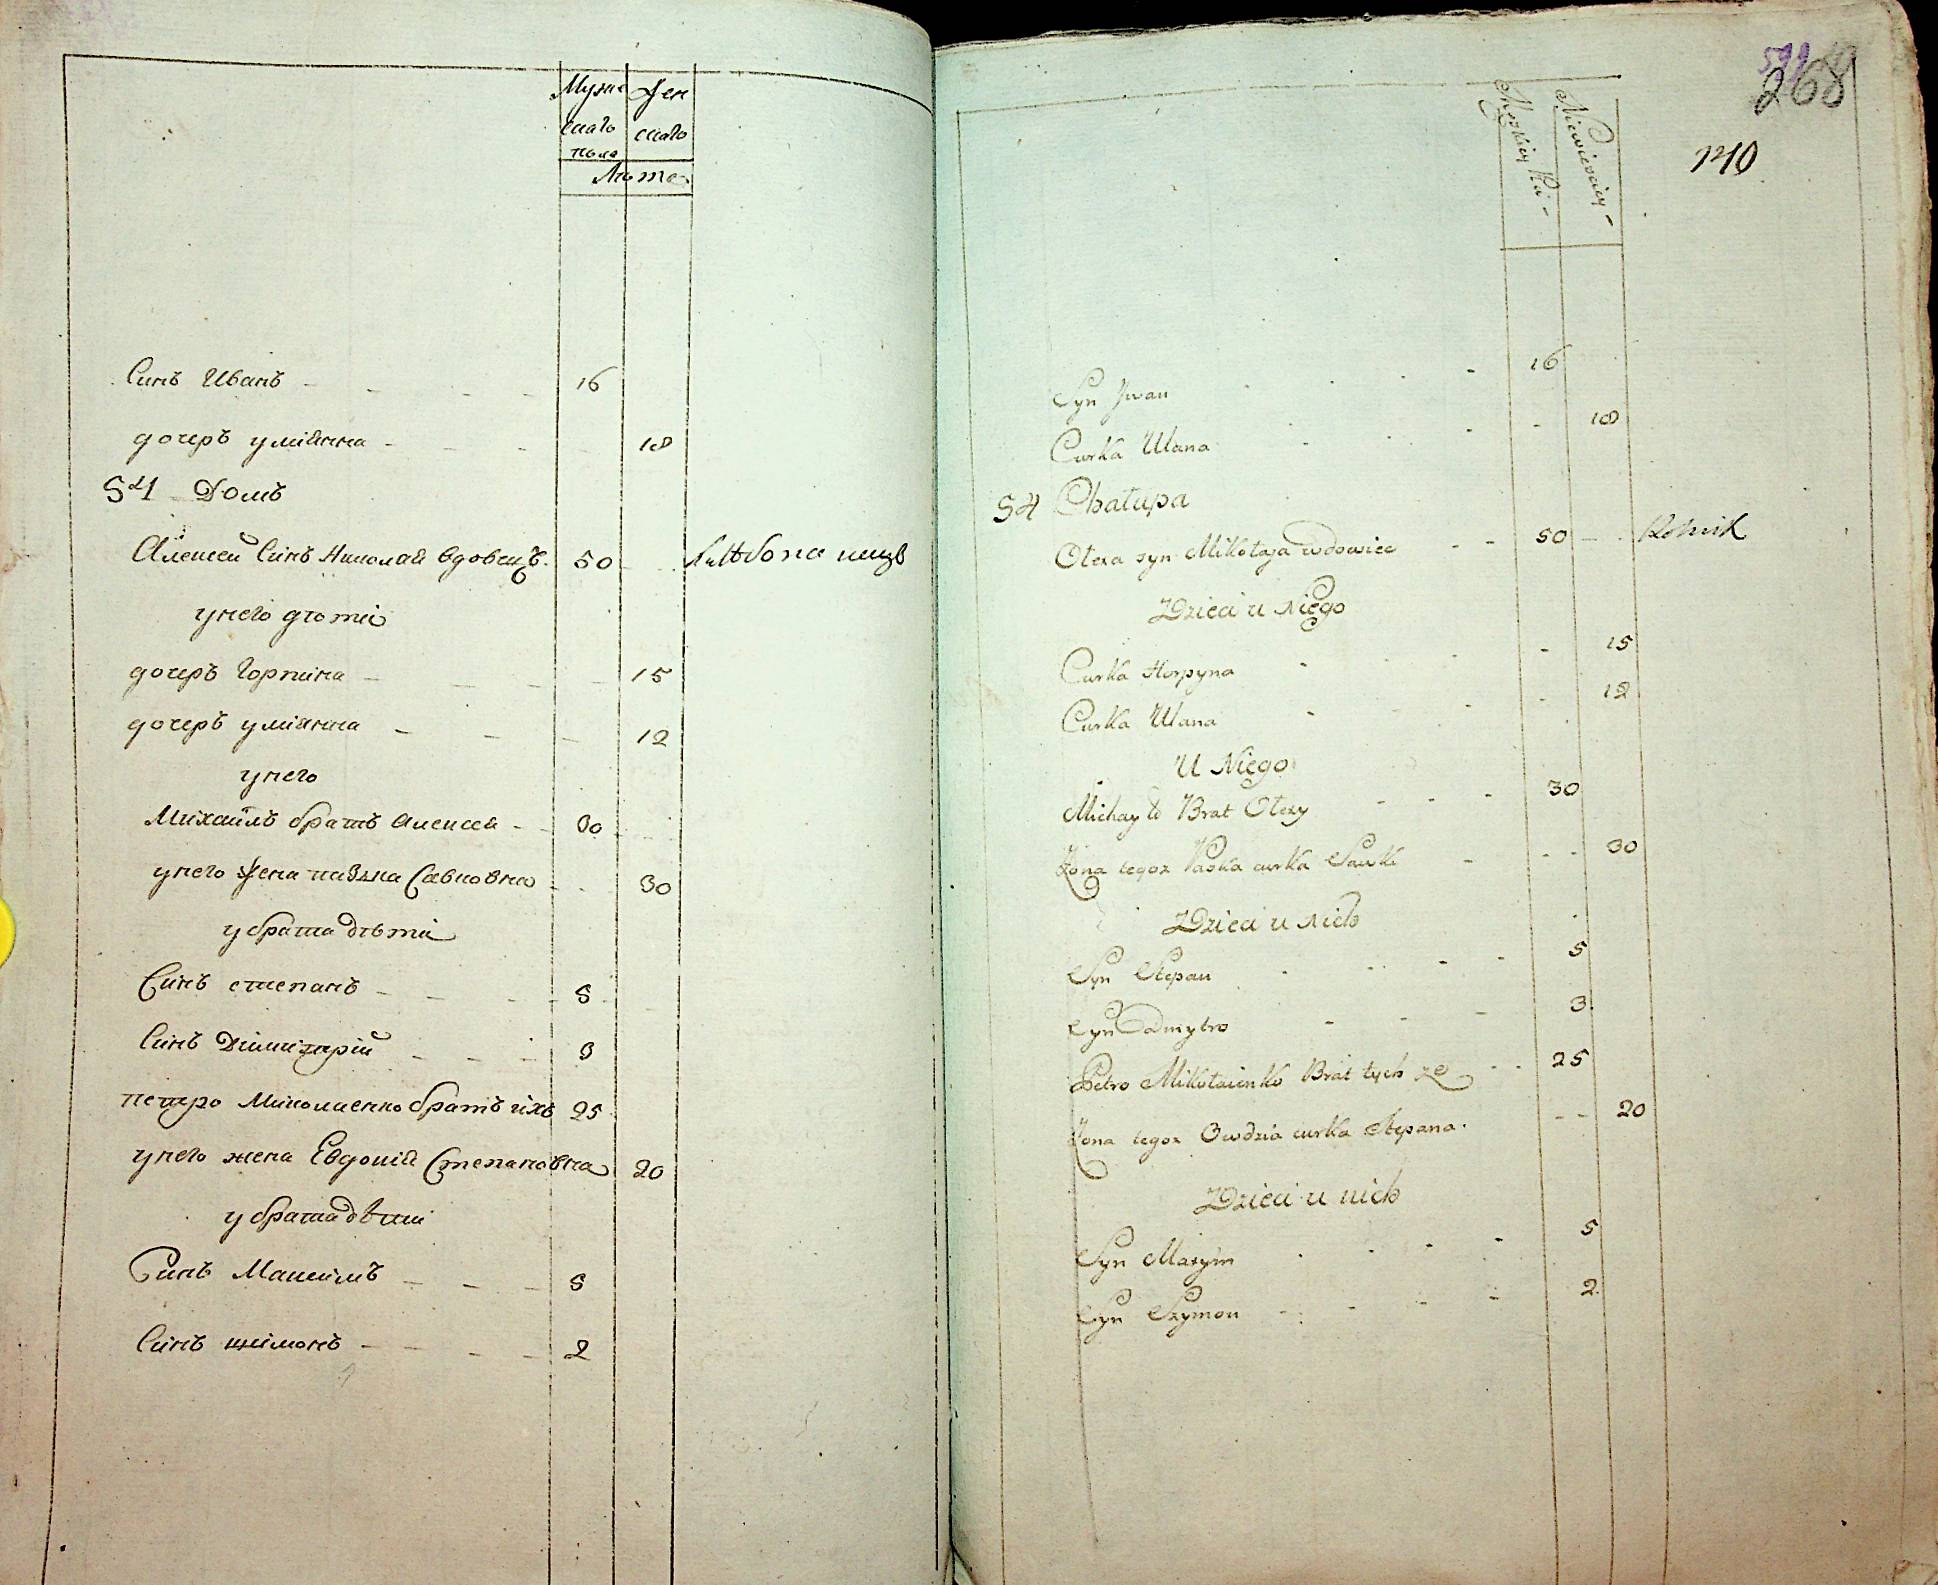 Муже Жен
скаго скаго
пола
Лѣта
Синъ Иванъ 16
дочеръ улиянна 18
54 Домъ
Алексей Синъ Николай вдовецъ 50 хлѣбопашецъ
унего дѣти
дочеръ Горпина 15
дочеръ улиянна 12
унего
Михайлъ братъ Алексея 30
унего жена Савковна 30
убрата дѣти
Синъ степанъ 5
Синъ Димитрий 3
петро Миколаенко братъ ихъ 25
унего жена Евдокия Степановна 20
убрата дѣти
Синъ Максимъ 5
Синъ шимонъ 2
268
140
Męzkiey Płci
Niewiesciey
Syn Jwan 16
Curka Ulana 18
54 Chałupa
Olexa syn Mikołaja wdowiec 50 Rolnik
Dzieci u Niego
Curka Horpyna 15
Curka Ulana 12
U Niego
Michayło Brat Olexy 30
Żona tegoz Paska curka Sawki 30
Dzieci u nich
Syn Stepan 5
Syn Dmytro 3
Petro Mikołaienko Brat tych ze 25
Żona tegoz Owdzia curka Stepana 20
Dzieci u nich
Syn Maxym 5
Syn Szymon 2